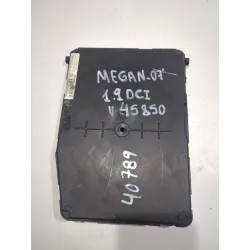 MEGAN-07
1.9 DCI
V45850
40789